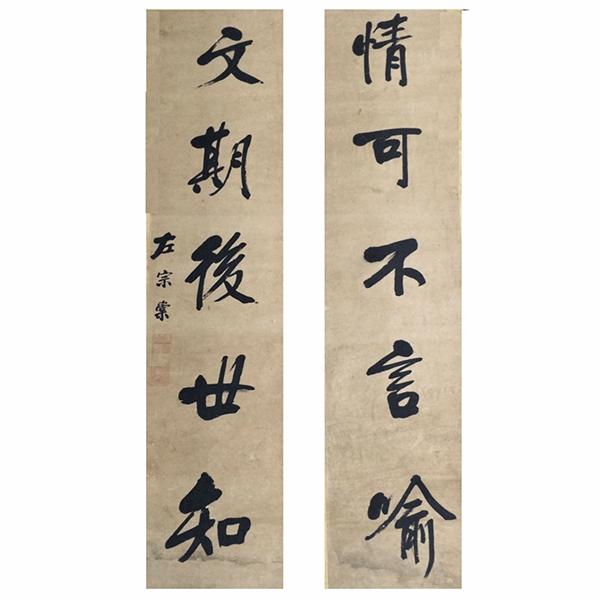 情可不言喻
文期後世知
左宗棠